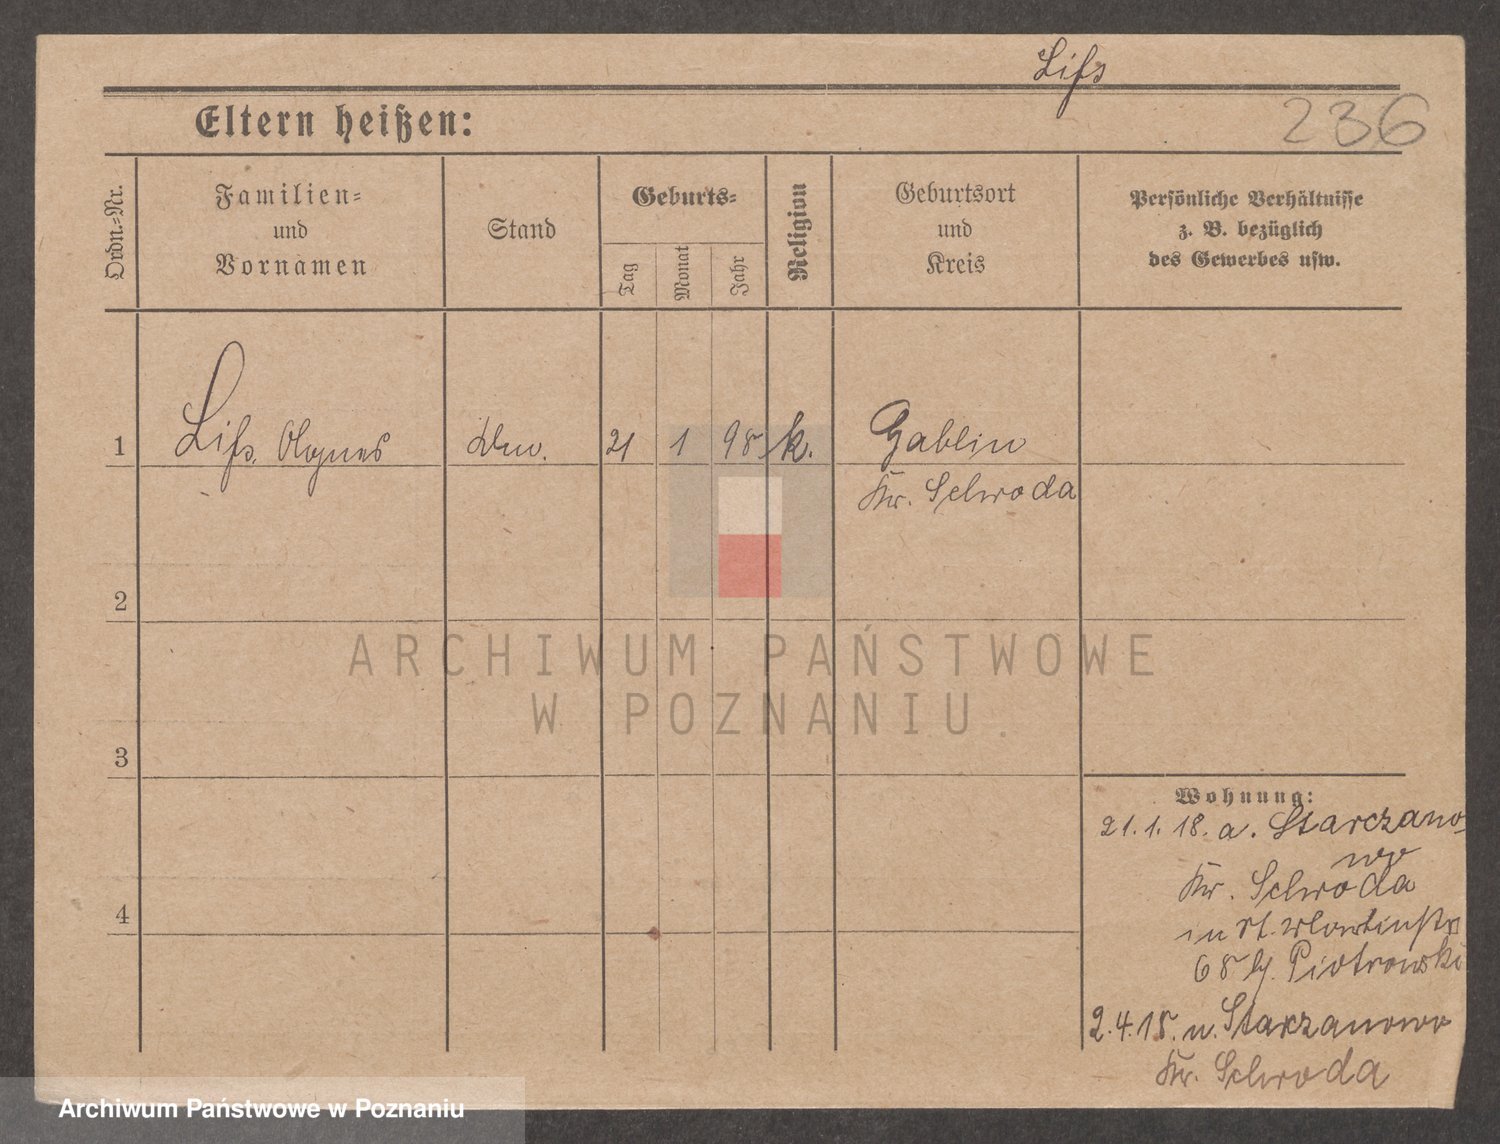 Liß
236
Eltern heißen:
Ordn.-Nr.
Familien-
und
Vornamen
Stand
Geburts-
Tag
Monat
Jahr
Religion
Geburtsort
und
Kreis
Persönliche Verhältnisse
z. B. bezüglich
des Gewerbes usw.
1
Liß, Agnes
21 1 98 k.
Gablin
Kr. Schroda
2
3
4
Wohnung:
21.1.18. a. Starczano-
wo
Kr. Schroda
in St. Martinstr
68 b/. Piotrowski
2.4.18. n. Starczanowo
Kr. Schroda
ARCHIWUM PAŃSTWOWE
W POZNANIU
Archiwum Państwowe w Poznaniu